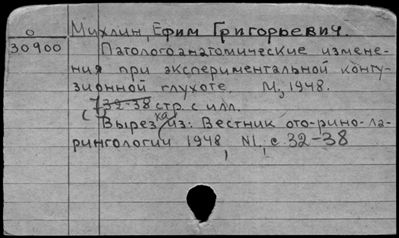 О
30900
Михлин, Ефим Григорьевич.
Патологоанатомические измене-
ния при экспериментальной конту-
зионной глухоте. М., 1948.
32-38 стр. с илл.
Вырезка из: Вестник ото-рино-ла-
рингологии 1948 N1, с 32-38